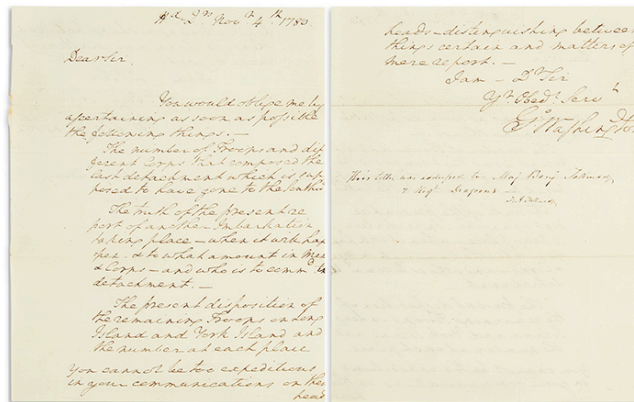 Hd Qrs Novr 4th 1780.
Dear Sir.
You would oblige me by
ascertaining as soon as possible
the following things. —
The number of Troops and dif
ferent Corps that composed the
last detachment which is sup
posed to have gone to the southw
The truth of the present re
port of another Imbarkation
taking place — when it will hap
pen & to what amount in Men
& Corps — and who is to commd the
detachment. —
The present disposition of
the remaining Troops on Long
Island and York Island and
the number at each place
You cannot be too expeditious
in your communications on these
heads
heads — distinguishing between
things certain and matters of
mere report. —
I am — Dr Sir
Yr Obedt Servt
Go Washington
This letter was addressed to Maj Benj Tallmadge
2 Regt Dragoons —